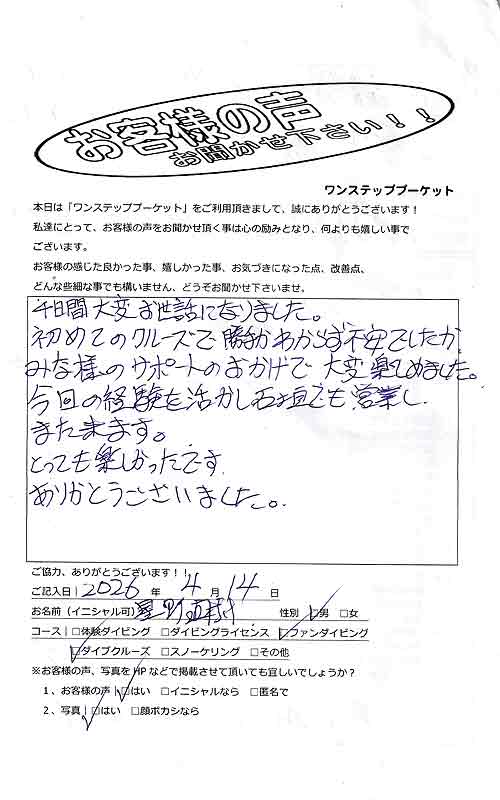 お客様の声
お聞かせ下さい！！
ワンステッププーケット
本日は「ワンステッププーケット」をご利用頂きまして、誠にありがとうございます！
私達にとって、お客様の声をお聞かせ頂く事は心の励みとなり、何よりも嬉しい事で
ございます。
お客様の感じた良かった事、嬉しかった事、お気づきになった点、改善点、
どんな些細な事でも構いません、どうぞお聞かせ下さいませ。
日間大変お世話になりました。
初めてのクルーズで勝手がわからず不安でしたが、
みな様のサポートのおかげで大変楽しめました。
今回の経験を活かし石垣でも営業し
また来ます。
とっても楽しかったです
ありがとうございました。
ご協力、ありがとうございます！！
ご記入日｜2026 年 4 月 14 日
お名前（イニシャル可） 星野 性別 □男 □女
コース｜□体験ダイビング □ダイビングライセンス □ファンダイビング
□ダイブクルーズ □スノーケリング □その他
※お客様の声、写真をHPなどで掲載させて頂いても宜しいでしょうか？
1、お客様の声｜□はい □イニシャルなら □匿名で
2、写真｜□はい □顔ボカシなら